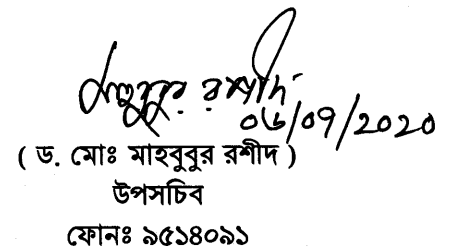 মাহবুবুর রশীদ
০৬/০৭/২০২০
( ড. মোঃ মাহবুবুর রশীদ )
উপসচিব
ফোনঃ ৯৫১৪০৯১